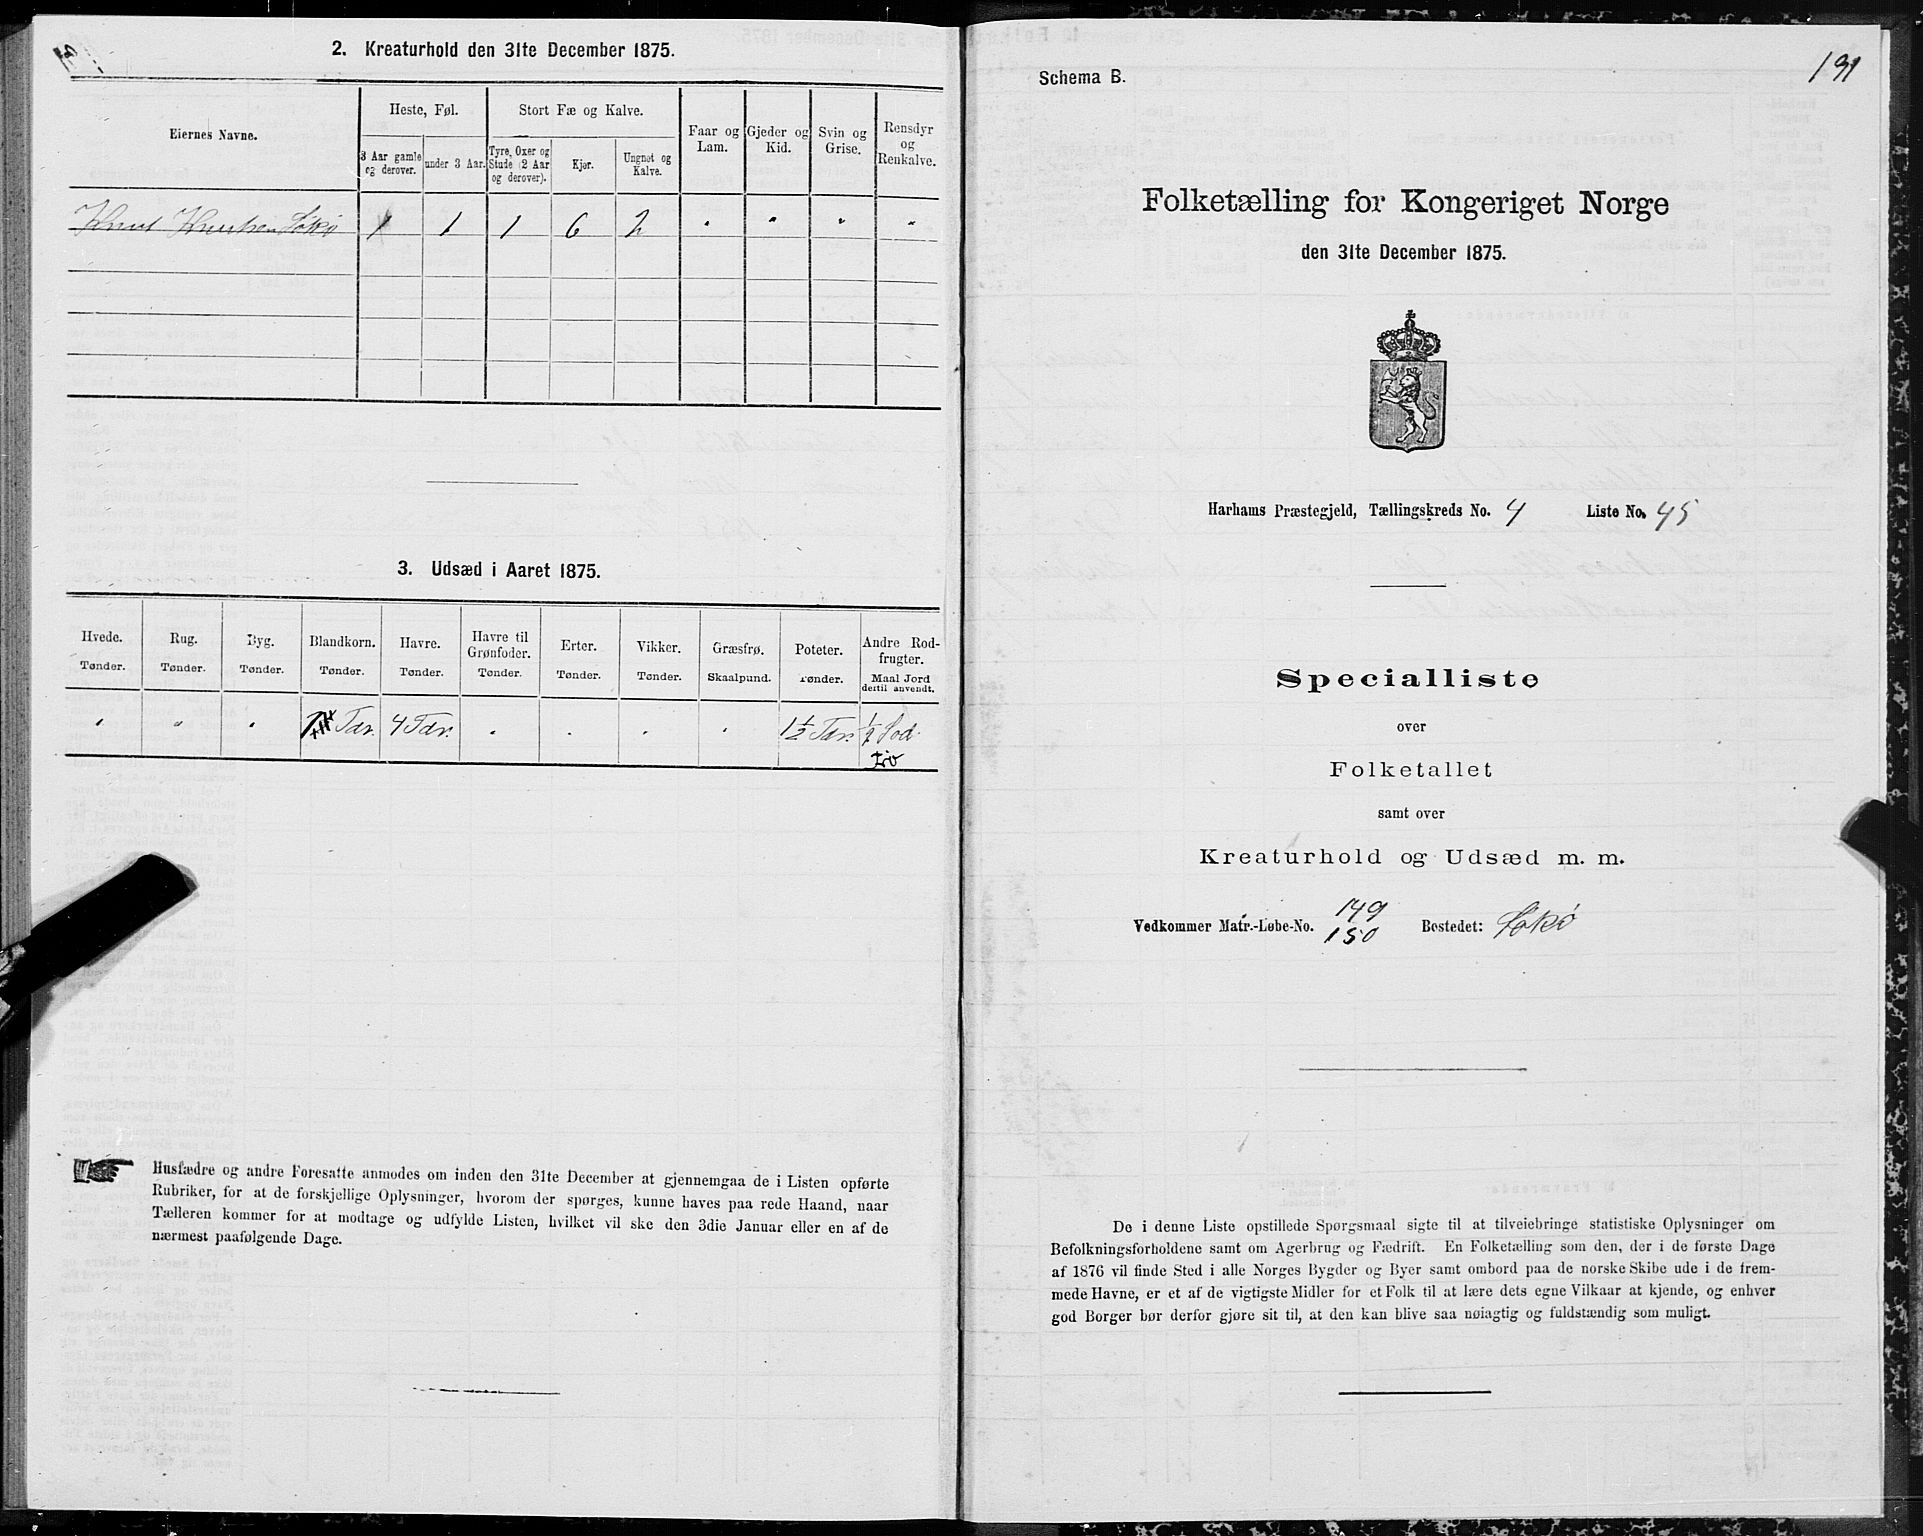 2. Kreaturhold den 31te December 1875.
Eiernes Navne.
Heste, Føl.
Stort Fæ og Kalve.
Faar og Lam.
Gjeder og Kid.
Svin og Grise.
Rensdyr og Renkalve.
3 Aar gamle og derover.
under 3 Aar.
Tyre, Oxer og Stude (2 Aar og derover).
Kjør.
Ungnøt og Kalve.
Knut Knutsen Løkø 1 1 1 6 2 " " " "
3. Udsæd i Aaret 1875.
Hvede. Tønder.
Rug. Tønder.
Byg. Tønder.
Blandkorn. Tønder.
Havre. Tønder.
Havre til Grønfoder. Tønder.
Erter. Tønder.
Vikker. Tønder.
Græsfrø. Skaalpund.
Poteter. Tønder.
Andre Rodfrugter. Maal Jord dertil anvendt.
" " " Tdr. 4 Tdr. " " " " 1½ Tdr.
Husfædre og andre Foresatte anmodes om inden den 31te December at gjennemgaa de i Listen opførte
Rubriker, for at de forskjellige Oplysninger, hvorom der spørges, kunne haves paa rede Haand, naar
Tælleren kommer for at modtage og udfylde Listen, hvilket vil ske den 3die Januar eller en af de
nærmest paafølgende Dage.
191
Schema B.
Folketælling for Kongeriget Norge
den 31te December 1875.
Harhams Præstegjeld, Tællingskreds No. 4 Liste No. 45
Specialliste
over
Folketallet
samt over
Kreaturhold og Udsæd m. m.
Vedkommer Matr.-Løbe-No. 149 150 Bostedet: Løkø
De i denne Liste opstillede Spørgsmaal sigte til at tilveiebringe statistiske Oplysninger om
Befolkningsforholdene samt om Agerbrug og Fædrift. En Folketælling som den, der i de første Dage
af 1876 vil finde Sted i alle Norges Bygder og Byer samt ombord paa de norske Skibe ude i de frem-
mede Havne, er et af de vigtigste Midler for et Folk til at lære dets egne Vilkaar at kjende, og enhver
god Borger bør derfor gjøre sit til, at den kan blive saa nøiagtig og fuldstændig som muligt.